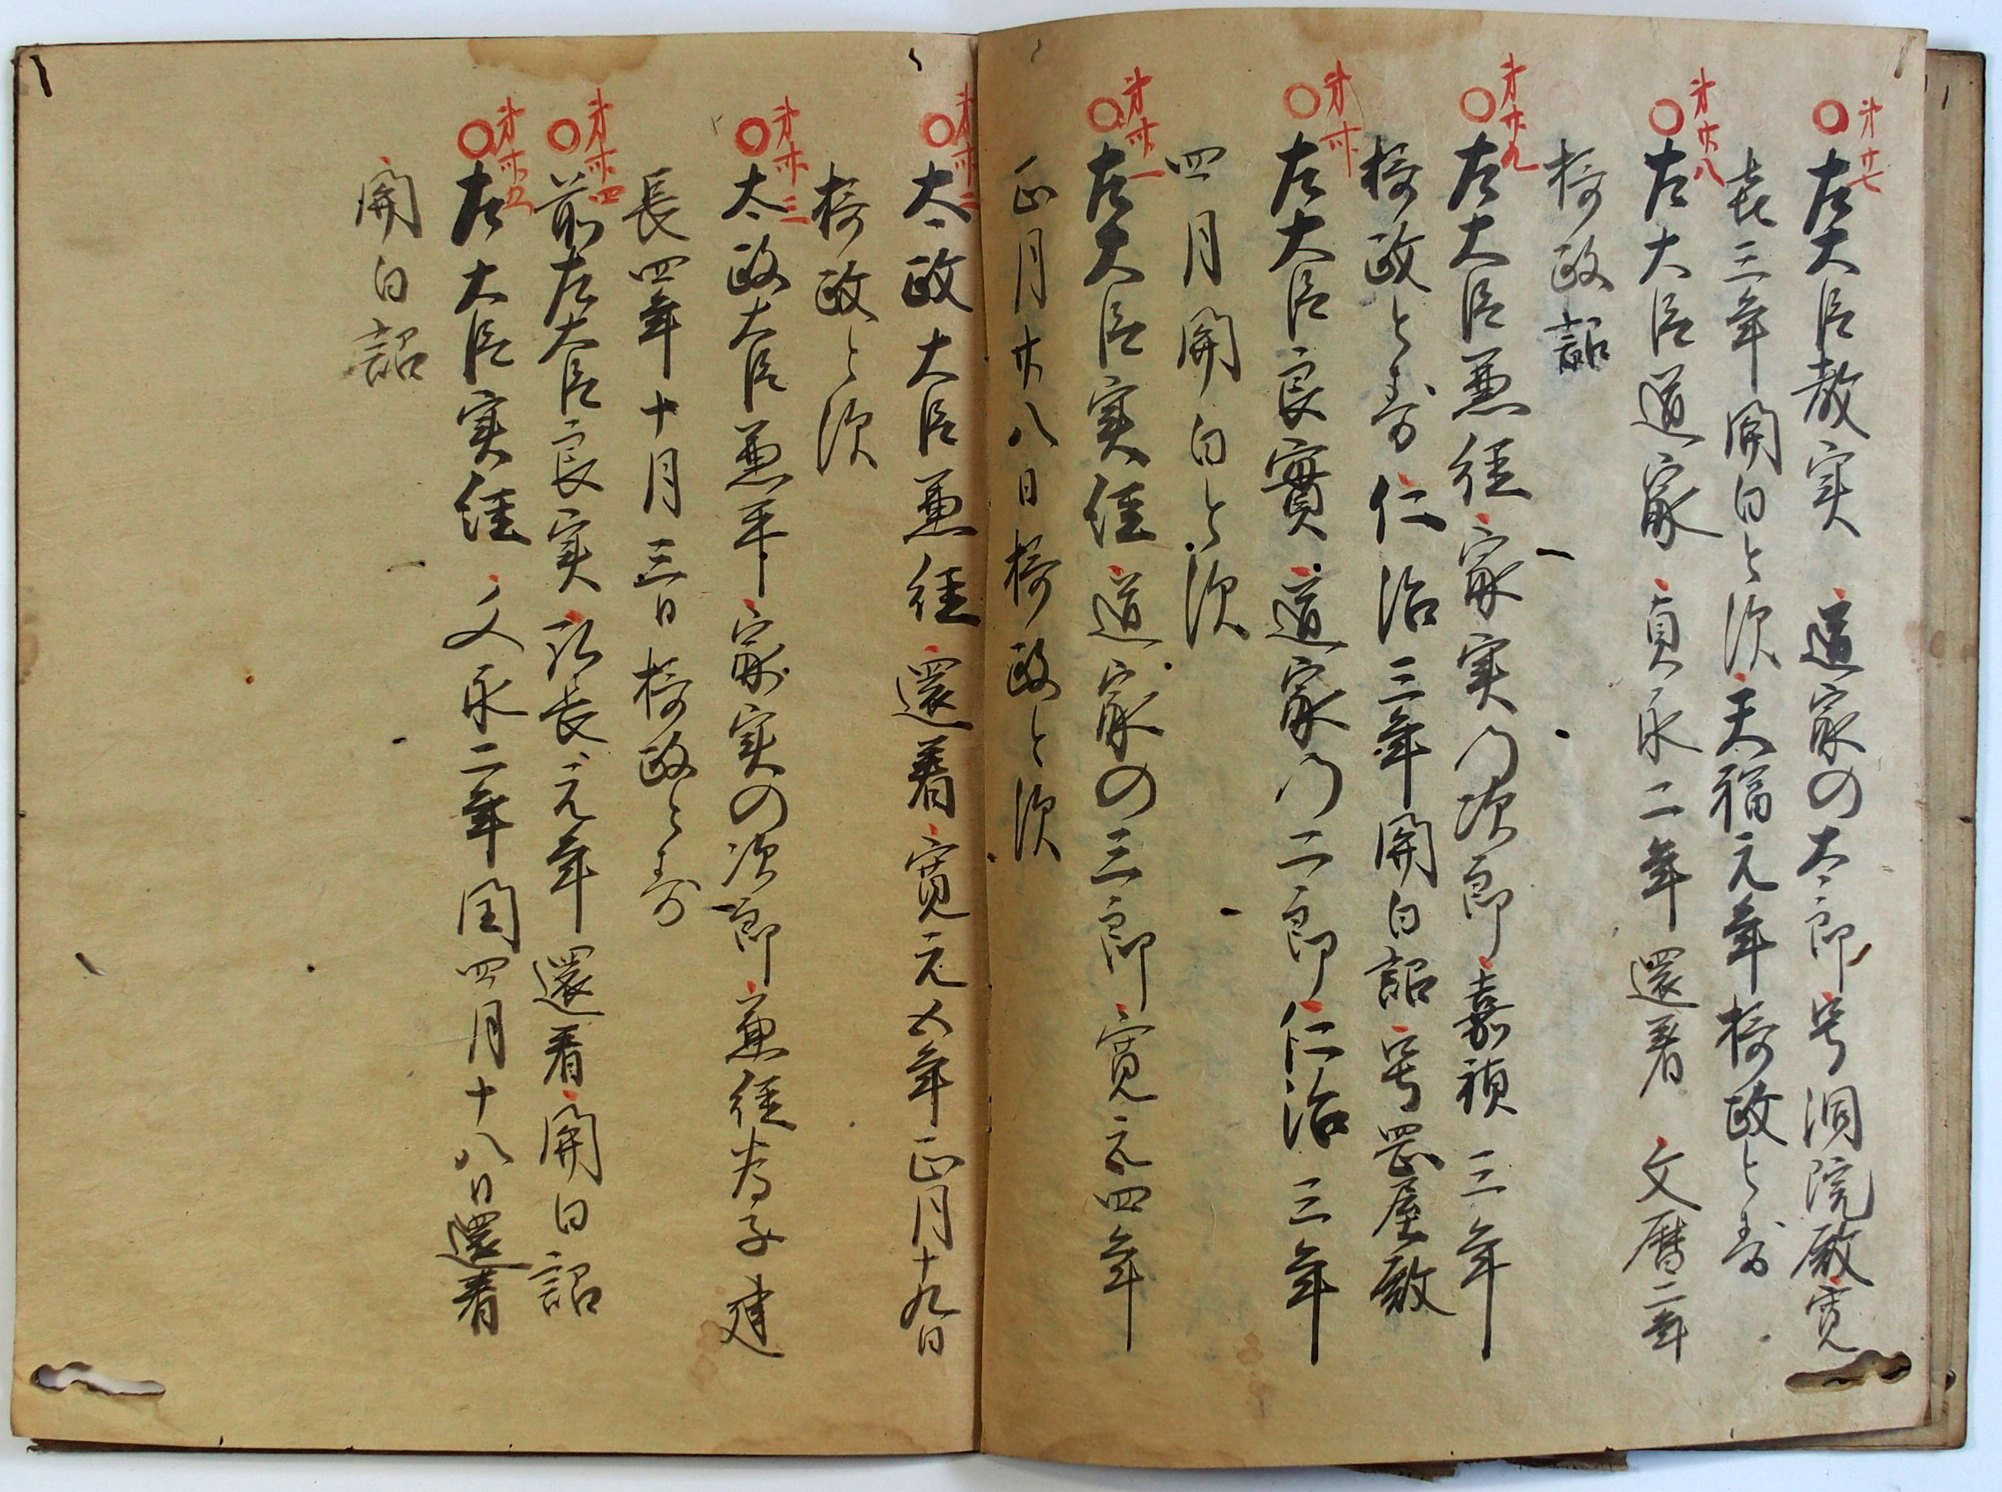 第廿七
○左大臣教実 道家の太郎号洞院殿寛
㐂三年関白と次天福元年摂政と寿
第廿八
○左大臣道家 貞永二年還着 文暦二年
摂政詔
第廿九
○左大臣兼経家実乃次郎嘉禎三年
摂政と寿仁治三年関白詔号罡屋殿
第卅
○左大臣良實道家乃二郎仁治三年
四月関白と次
第卅一
○左大臣実経道家の三郎寛元四年
正月廿八日摂政と次
第卅二
○太政大臣兼経還着寛元五年正月十九日
摂政と次
第卅三
○太政大臣兼平家実の次郎兼経為子建
長四年十月三日摂政と寿
第卅四
○前左大臣良実弘長元年還着関白詔
第卅五
○左大臣実経 文永二年閏四月十八日還着
関白詔